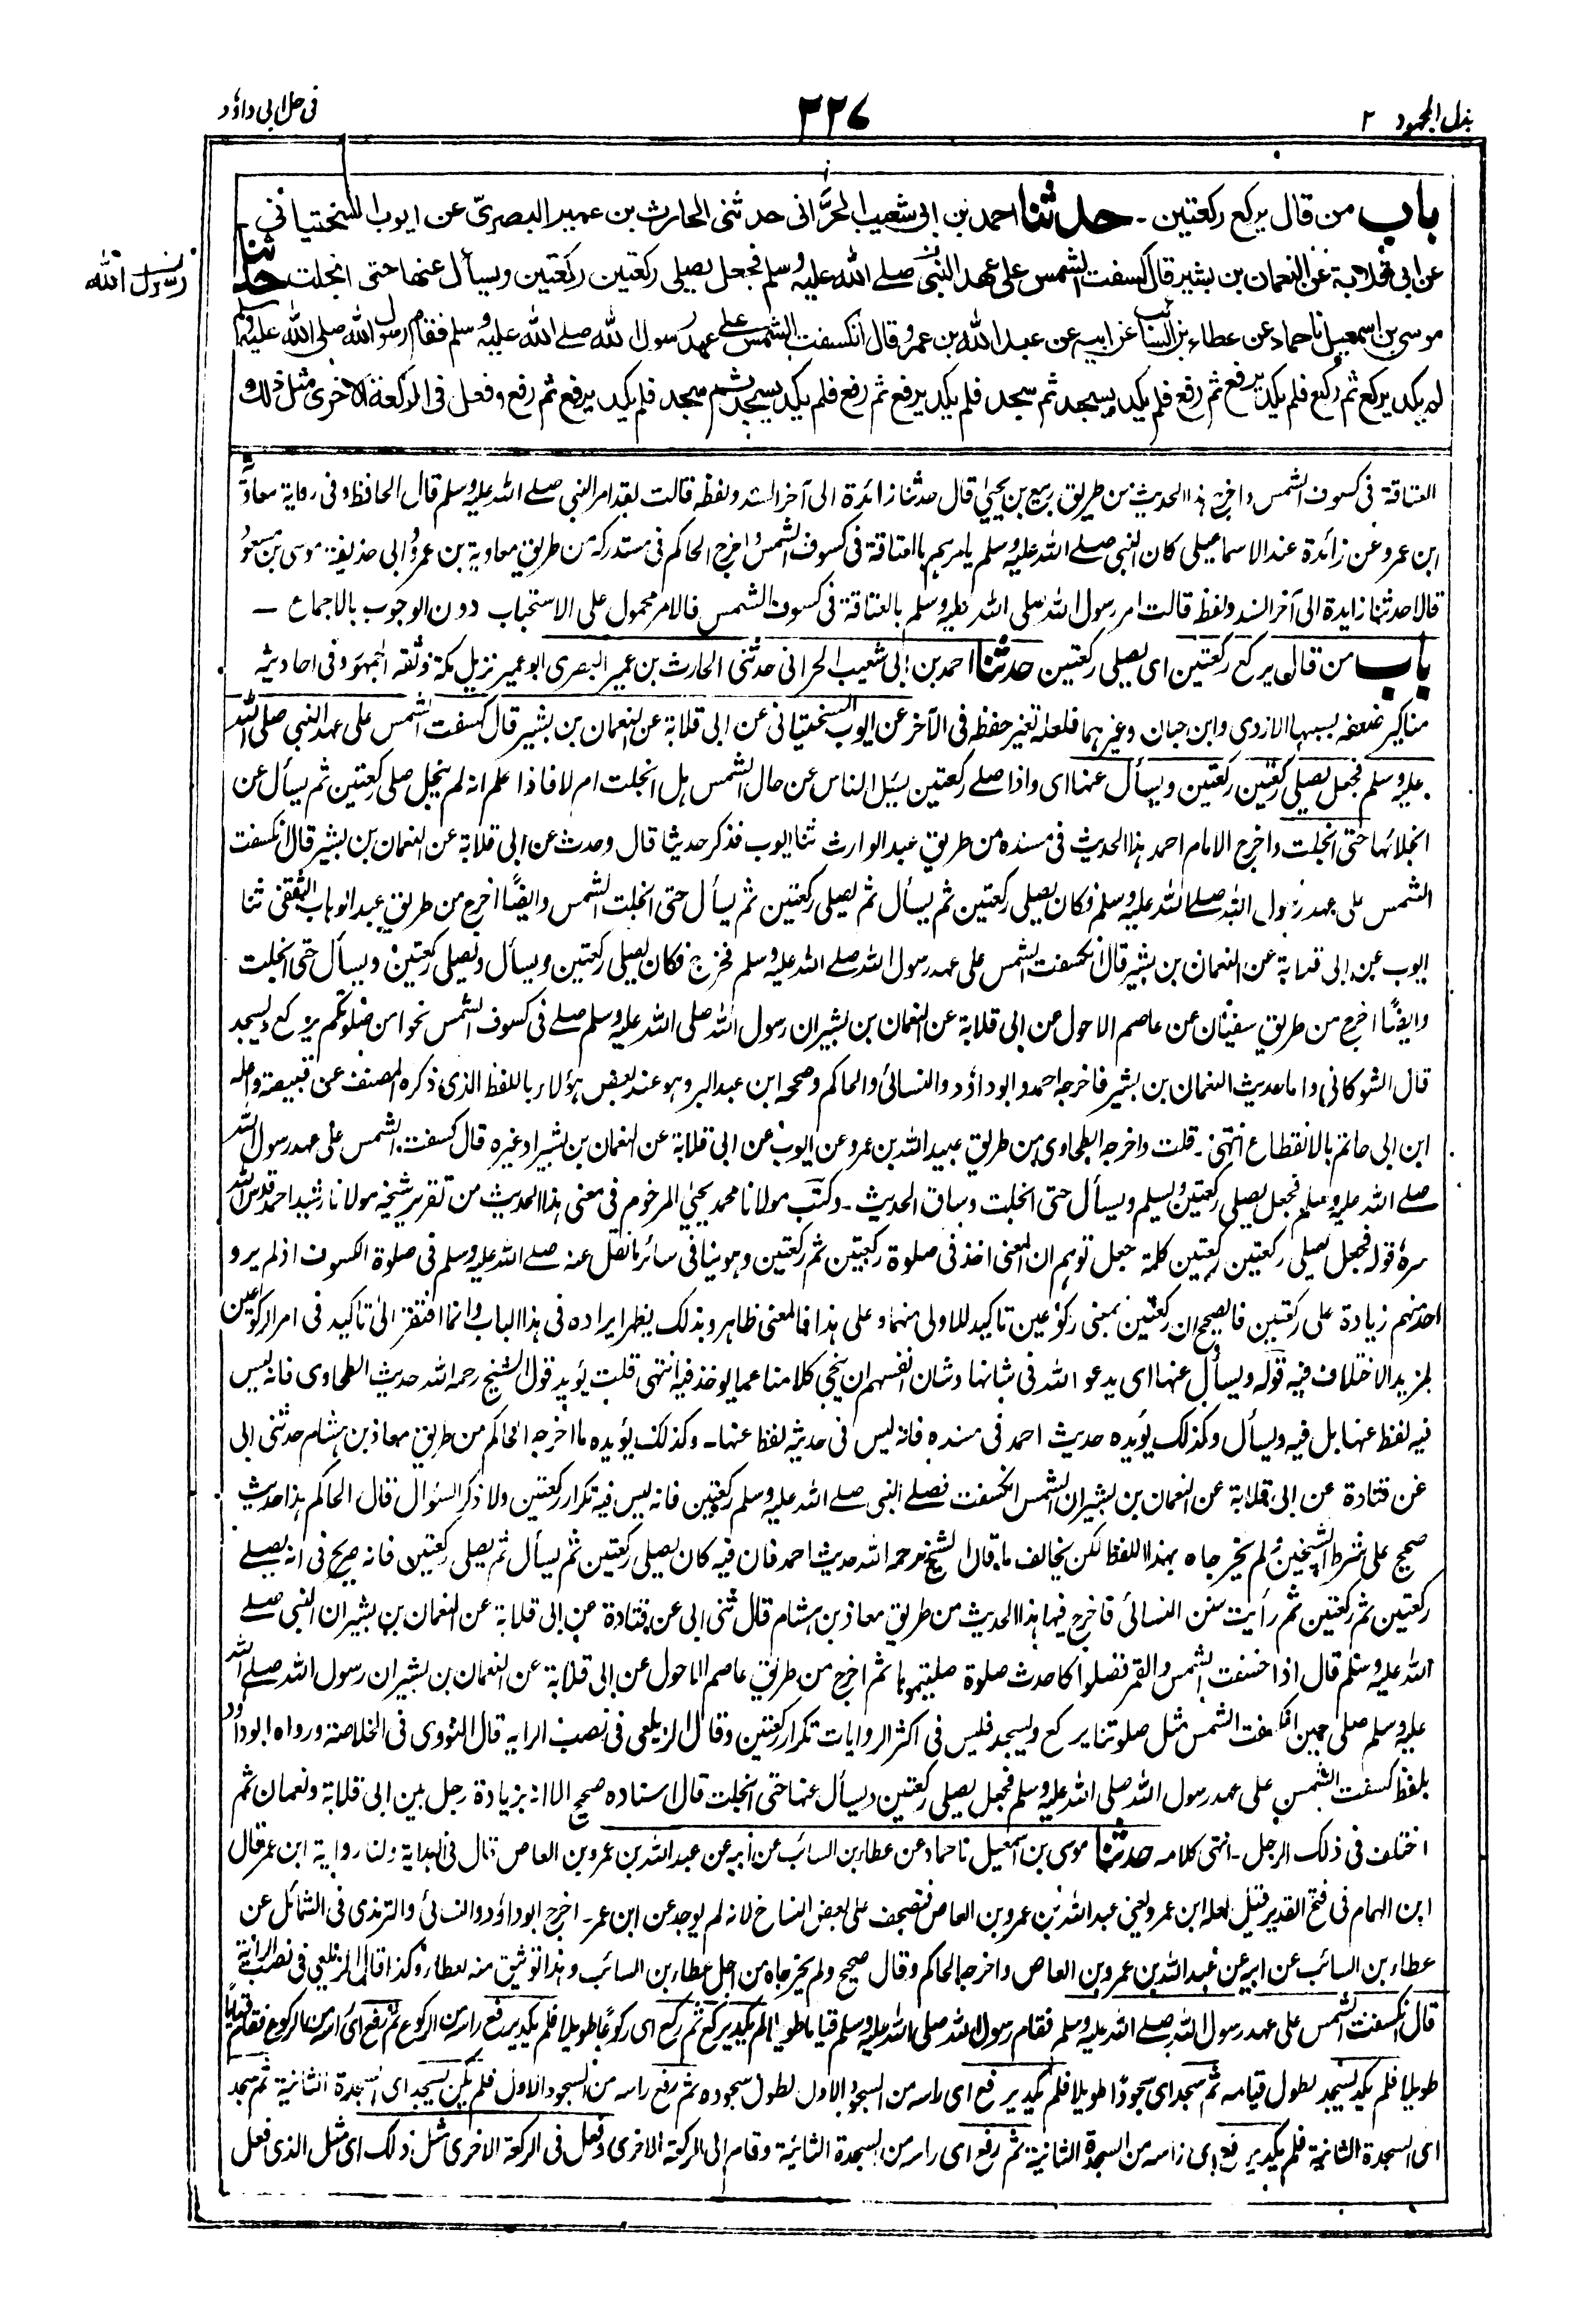 بذل المجهود ٢
٢٢٧
فى حل ابى داؤد
باب من قال يركع ركعتين ـ حدثنا احمد بن ابى شعيب الحرانى حدثنى الحارث بن عمير البصرى عن ايوب السختيانى
عن ابى قلابة عن النعمان بن بشير قال كسفت الشمس على عهد النبى صلے الله عليه وسلم فجعل يصلى ركعتين ركعتين ويسأل عنها حتى انجلت حدثنا
رسول الله
موسى بن اسمعيل نا حماد عن عطاء بن السائب عن ابيه عن عبد الله بن عمرو قال انكسفت الشمس على عهد رسول الله صلے الله عليه وسلم فقام رسول الله صلى الله عليه وسلم
لم يكد يركع ثم ركع فلم يكد يرفع ثم رفع فلم يكد يسجد ثم سجد فلم يكد يرفع ثم رفع فلم يكد يسجد ثم سجد فلم يكد يرفع ثم رفع وفعل فى الركعة الاخرى مثل ذلك و
العتاقة فى كسوف الشمس واخرج هذا الحديث من طريق ربيع بن يحيىٰ قال حدثنا زائدة الى آخر السند ولفظه قالت لقد امر النبى صلے الله عليه وسلم قال الحافظ وفى رواية معاوية
ابن عمرو عن زائدة عند الاسماعيلى كان النبى صلے الله عليه وسلم يامرهم بالعتاقة فى كسوف الشمس واخرج الحاكم فى مستدركه من طريق معاوية بن عمرو وابى حذيفة موسى بن مسعود
قالا حدثنا زايدة الى آخر السند ولفظه قالت امر رسول الله صلى الله عليه وسلم بالعتاقة فى كسوف الشمس فالامر محمول على الاستحباب دون الوجوب بالاجماع ـ
باب من قال يركع ركعتين اى يصلى ركعتين حدثنا احمد بن ابى شعيب الحرانى حدثنى الحارث بن عمير البصرى ابو عمير نزيل مكة وثقه الجمهور وفى احاديثه
مناكير ضعفه بسببها الازدى وابن حبان وغيرهما فلعله تغير حفظه فى الآخر عن ايوب السختيانى عن ابى قلابة عن النعمان بن بشير قال كسفت الشمس على عهد النبى صلى الله
عليه وسلم فجعل يصلى ركعتين ركعتين ويسأل عنها اى واذا صلے ركعتين يسئل الناس عن حال الشمس هل انجلت ام لا فاذا علم انه لم ينجل صلى ركعتين ثم يسأل عن
انجلائها حتى انجلت واخرج الامام احمد هذا الحديث فى مسنده من طريق عبد الوارث ثنا ايوب فذكر حديثا قال وحدث عن ابى قلابة عن النعمان بن بشير قال انكسفت
الشمس على عهد رسول الله صلے الله عليه وسلم فكان يصلى ركعتين ثم يسأل ثم يصلى ركعتين ثم يسأل حتى انجلت الشمس وايضًا اخرج من طريق عبد الوهاب الثقفى ثنا
ايوب عن ابى قلابة عن النعمان بن بشير قال انكسفت الشمس على عهد رسول الله صلے الله عليه وسلم فخرج فكان يصلى ركعتين ويسأل ويصلى ركعتين ويسأل حتى انجلت
وايضًا اخرج من طريق سفيان عن عاصم الاحول عن ابى قلابة عن النعمان بن بشير ان رسول الله صلى الله عليه وسلم صلے فى كسوف الشمس نحوا من صلوتكم يركع ويسجد
قال الشوكانى واما حديث النعمان بن بشير فاخرجه احمد وابو داؤد والنسائى والحاكم وصححه ابن عبد البر وهو عند بعض هؤلاء باللفظ الذى ذكره المصنف عن قبيصة واعله
ابن ابى حاتم بالانقطاع انتهى ـ قلت واخرجه الطحاوى من طريق عبيد الله بن عمرو عن ايوب عن ابى قلابة عن النعمان بن بشير او غيره قال كسفت الشمس على عهد رسول الله
صلے الله عليه وسلم فجعل يصلى ركعتين ويسلم ويسأل حتى انجلت وساق الحديث ـ وكتب مولانا محمد يحيى المرحوم فى معنى هذا الحديث من تقرير شيخه مولانا رشيد احمد قدس الله
سره قوله فجعل يصلى ركعتين ركعتين كلمة جعل توهم ان المعنى اخذ فى صلوة ركعتين ثم ركعتين وهو ينافى سائر ما نقل عنه صلے الله عليه وسلم فى صلوة الكسوف اذ لم يرو
احد منهم زيادة على ركعتين فالصحيح ان ركعتين بمعنى ركوعين تاكيد للاولى منهما وعلى هذا فالمعنى ظاهر وبذلك يظهر ايراده فى هذا الباب وانما افتقر الى تاكيد فى امر الركوعين
لمزيد الاختلاف فيه قوله ويسأل عنها اى يدعو الله فى شانها وشان انفسهم ان ينجى كلا منا عما يوخذ فيه انتهى قلت يؤيد قول الشيخ رحمه الله حديث الطحاوى فانه ليس
فيه لفظ عنها بل فيه ويسأل وكذلك يؤيده حديث احمد فى مسنده فانه ليس فى حديثه لفظ عنها ـ وكذلك يؤيده ما اخرجه الحاكم من طريق معاذ بن هشام حدثنى ابى
عن قتادة عن ابى قلابة عن النعمان بن بشير ان الشمس انكسفت فصلے النبى صلے الله عليه وسلم ركعتين فانه ليس فيه تكرار ركعتين ولا ذكر السؤال قال الحاكم هذا حديث
صحيح على شرط الشيخين ولم يخرجاه بهذا اللفظ لكن يخالف ما قال الشيخ رحمه الله حديث احمد فان فيه كان يصلى ركعتين ثم يسأل ثم يصلى ركعتين فانه صريح فى انه يصلے
ركعتين ثم ركعتين ثم رأيت سنن النسائى فاخرج فيها هذا الحديث من طريق معاذ بن هشام قال ثنى ابى عن قتادة عن ابى قلابة عن النعمان بن بشير ان النبى صلے
الله عليه وسلم قال اذا خسفت الشمس والقمر فصلوا كاحدث صلوة صليتموها ثم اخرج من طريق عاصم الاحول عن ابى قلابة عن النعمان بن بشير ان رسول الله صلے الله
عليه وسلم صلى حين انكسفت الشمس مثل صلوتنا يركع ويسجد فليس فى اكثر الروايات تكرار ركعتين وقال الزيلعى فى نصب الراية قال النووى فى الخلاصة ورواه ابو داؤد
بلفظ كسفت الشمس على عهد رسول الله صلى الله عليه وسلم فجعل يصلى ركعتين ويسأل عنها حتى انجلت قال اسناده صحيح الا انه بزيادة رجل بين ابى قلابة ونعمان ثم
اختلف فى ذلك الرجل ـ انتهى كلامه حدثنا موسى بن اسمعيل نا حماد عن عطاء بن السائب عن ابيه عن عبد الله بن عمرو بن العاص قال فى الهداية ولنا رواية ابن عمر قال
ابن الهمام فى فتح القدير قيل لعله ابن عمرو يعنى عبد الله بن عمرو بن العاص فتصحف على بعض النساخ لانه لم يوجد عن ابن عمر ـ اخرج ابو داؤد والنسائى والترمذى فى الشمائل عن
عطاء بن السائب عن ابيه عن عبد الله بن عمرو بن العاص واخرجه الحاكم وقال صحيح ولم يخرجاه من اجل عطاء بن السائب وهذا توثيق منه لعطاء وكذا قال الزيلعى فى نصب الراية
قال انكسفت الشمس على عهد رسول الله صلے الله عليه وسلم فقام رسول الله صلى الله عليه وسلم قياما طويلا لم يكد يركع ثم ركع اى ركوعًا طويلا فلم يكد يرفع راسه من الركوع ثم رفع اى راسه من الركوع فقام قياما
طويلا فلم يكد يسجد لطول قيامه ثم سجد اى سجودًا طويلا فلم يكد يرفع اى راسه من السجود الاول لطول سجوده ثم رفع راسه من السجود الاول فلم يكن يسجد اى السجدة الثانية ثم سجد
اى السجدة الثانية فلم يكد يرفع اى راسه من السجدة الثانية ثم رفع اى راسه من السجدة الثانية وقام الى الركعة الاخرى وفعل فى الركعة الاخرى مثل ذلك اى مثل الذى فعل